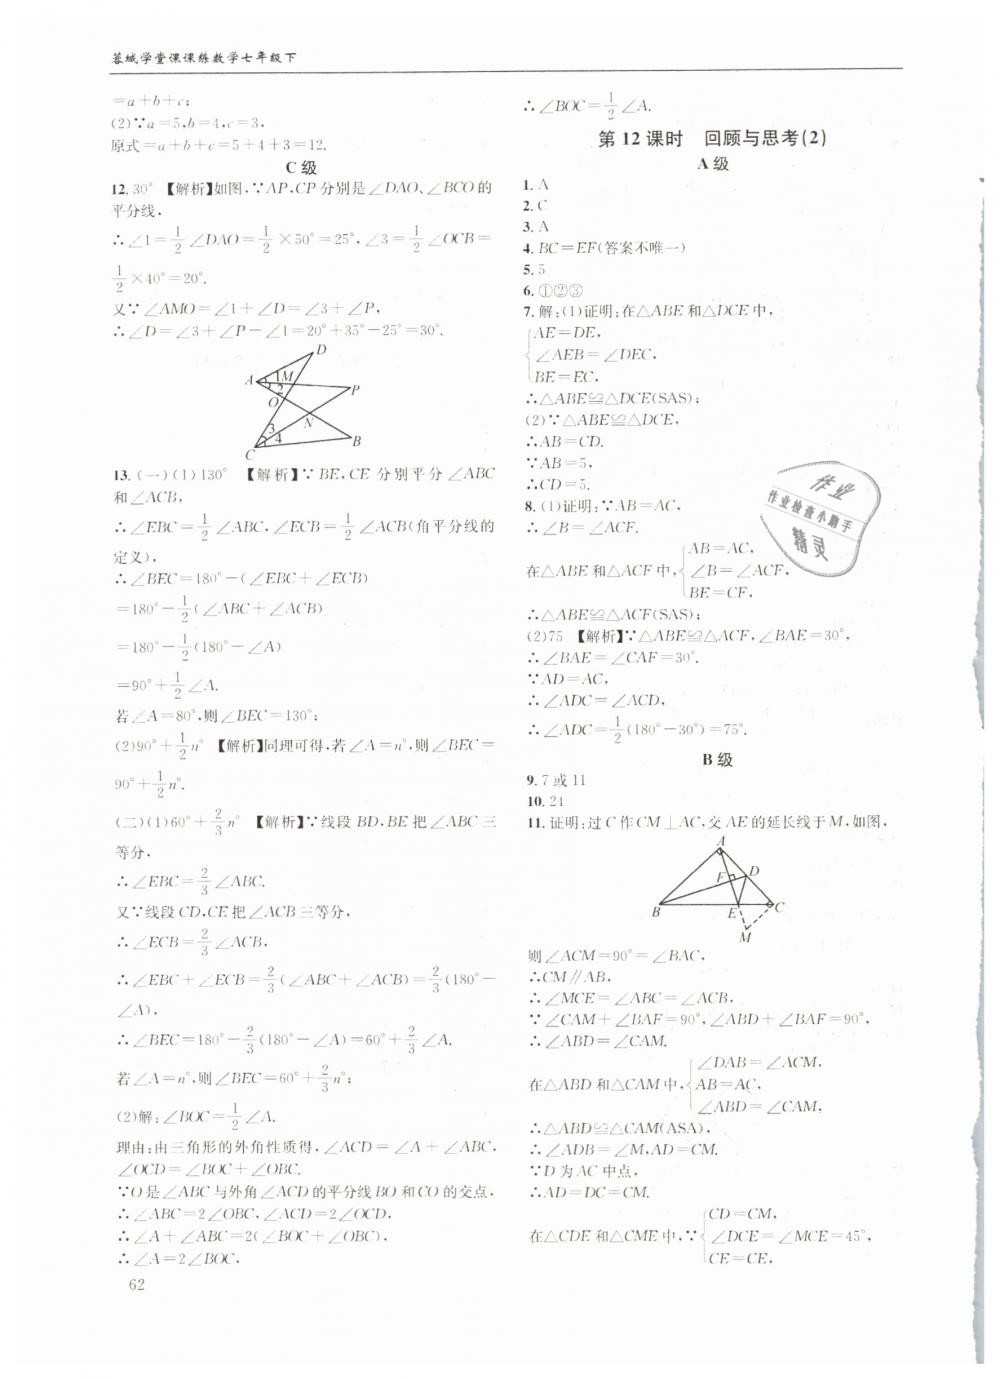 蓉城学堂课课练数学七年级下
=a+b+c;
(2)∵a=5,b=4,c=3,
原式=a+b+c=5+4+3=12.
C 级
12. 30° 【解析】如图,∵AP,CP 分别是∠DAO、∠BCO的
平分线,
∴∠1=1/2∠DAO=1/2×50°=25°,∠3=1/2∠OCB=
1/2×40°=20°.
又∵∠AMO=∠1+∠D=∠3+∠P,
∴∠D=∠3+∠P-∠1=20°+35°-25°=30°.
D
A 1 M
2 P
O
N
3
4 B
C
13. (一)(1)130° 【解析】∵BE,CE 分别平分∠ABC
和∠ACB,
∴∠EBC=1/2∠ABC,∠ECB=1/2∠ACB(角平分线的
定义),
∴∠BEC=180°-(∠EBC+∠ECB)
=180°-1/2(∠ABC+∠ACB)
=180°-1/2(180°-∠A)
=90°+1/2∠A.
若∠A=80°,则∠BEC=130°;
(2)90°+1/2n° 【解析】同理可得,若∠A=n°,则∠BEC=
90°+1/2n°.
(二)(1)60°+2/3n° 【解析】∵线段BD,BE把∠ABC三
等分,
∴∠EBC=2/3∠ABC.
又∵线段CD,CE把∠ACB三等分,
∴∠ECB=2/3∠ACB,
∴∠EBC+∠ECB=2/3(∠ABC+∠ACB)=2/3(180°-
∠A),
∴∠BEC=180°-2/3(180°-∠A)=60°+2/3∠A.
若∠A=n°,则∠BEC=60°+2/3n°;
(2)解:∠BOC=1/2∠A.
理由:由三角形的外角性质得,∠ACD=∠A+∠ABC,
∠OCD=∠BOC+∠OBC.
∵O是∠ABC与外角∠ACD的平分线BO和CO的交点,
∴∠ABC=2∠OBC,∠ACD=2∠OCD,
∴∠A+∠ABC=2(∠BOC+∠OBC),
∴∠A=2∠BOC,
62
∴∠BOC=1/2∠A.
第12课时 回顾与思考(2)
A 级
1. A
2. C
3. A
4. BC=EF(答案不唯一)
5. 5
6. ①②③
7. 解:(1)证明:在△ABE和△DCE中,
AE=DE,
∠AEB=∠DEC,
BE=EC,
∴△ABE≌△DCE(SAS);
(2)∵△ABE≌△DCE,
∴AB=CD.
∵AB=5,
∴CD=5.
8. (1)证明:∵AB=AC,
∴∠B=∠ACF.
AB=AC,
在△ABE和△ACF中,∠B=∠ACF,
BE=CF,
∴△ABE≌△ACF(SAS);
(2)75 【解析】∵△ABE≌△ACF,∠BAE=30°,
∴∠BAE=∠CAF=30°.
∵AD=AC,
∴∠ADC=∠ACD,
∴∠ADC=1/2(180°-30°)=75°.
作业
作业检查小助手
精灵
B 级
9. 7或11
10. 24
11. 证明:过C作CM⊥AC,交AE的延长线于M,如图,
A
F D
B E C
M
则∠ACM=90°=∠BAC,
∴CM∥AB,
∴∠MCE=∠ABC=∠ACB,
∵∠CAM+∠BAF=90°,∠ABD+∠BAF=90°,
∴∠ABD=∠CAM.
∠DAB=∠ACM,
在△ABD和△CAM中,AB=AC,
∠ABD=∠CAM,
∴△ABD≌△CAM(ASA),
∴∠ADB=∠M,AD=CM.
∵D为AC中点,
∴AD=DC=CM.
CD=CM,
在△CDE和△CME中,∵∠DCE=∠MCE=45°,
CE=CE,